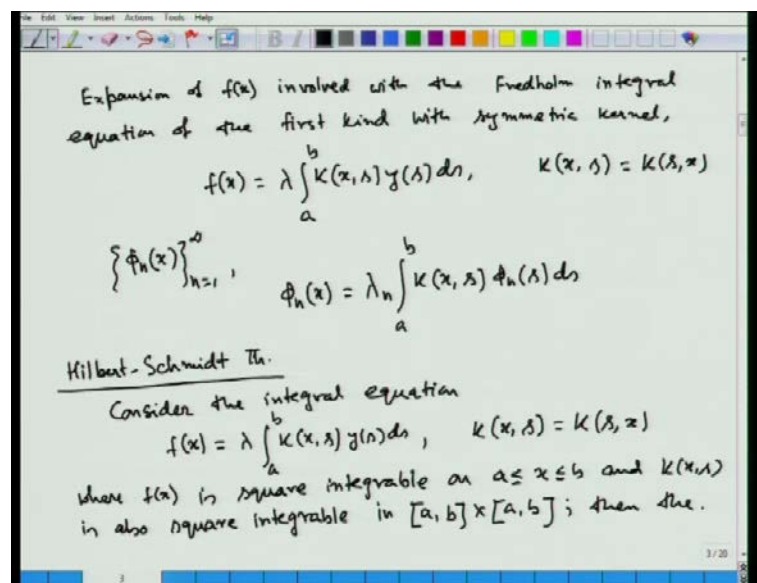 File Edit View Insert Actions Tools Help
Expansion of f(x) involved with the Fredholm integral
equation of the first kind with symmetric kernel,
f(x) = λ ∫_a^b K(x, s) y(s) ds, K(x, s) = K(s, x)
{ϕ_n(x)}_{n=1}^∞, ϕ_n(x) = λ_n ∫_a^b K(x, s) ϕ_n(s) ds
Hilbert-Schmidt Th.
Consider the integral equation
f(x) = λ ∫_a^b K(x, s) y(s) ds, K(x, s) = K(s, x)
where f(x) is square integrable on a ≤ x ≤ b and K(x, s)
is also square integrable in [a, b] × [a, b] ; then the.
3/20
3